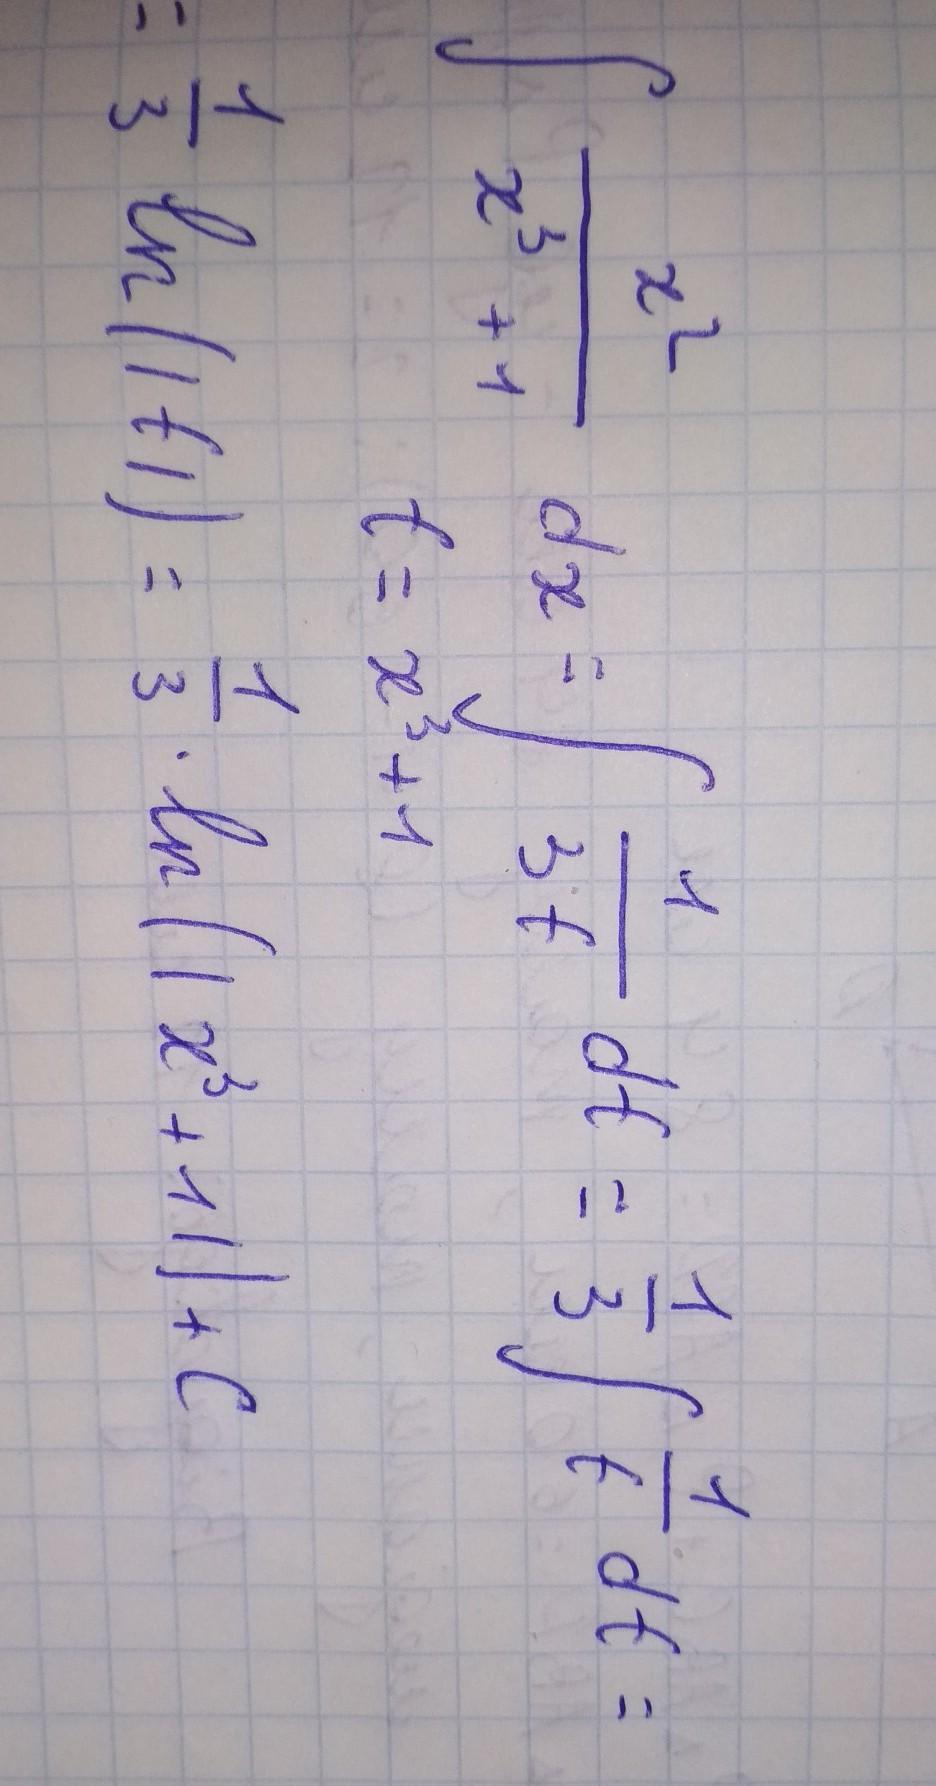 ∫ x²/(x³+1) dx = ∫ 1/(3t) dt = 1/3 ∫ 1/t dt =
t = x³+1
= 1/3 ln(|t|) = 1/3 · ln(|x³+1|)+C